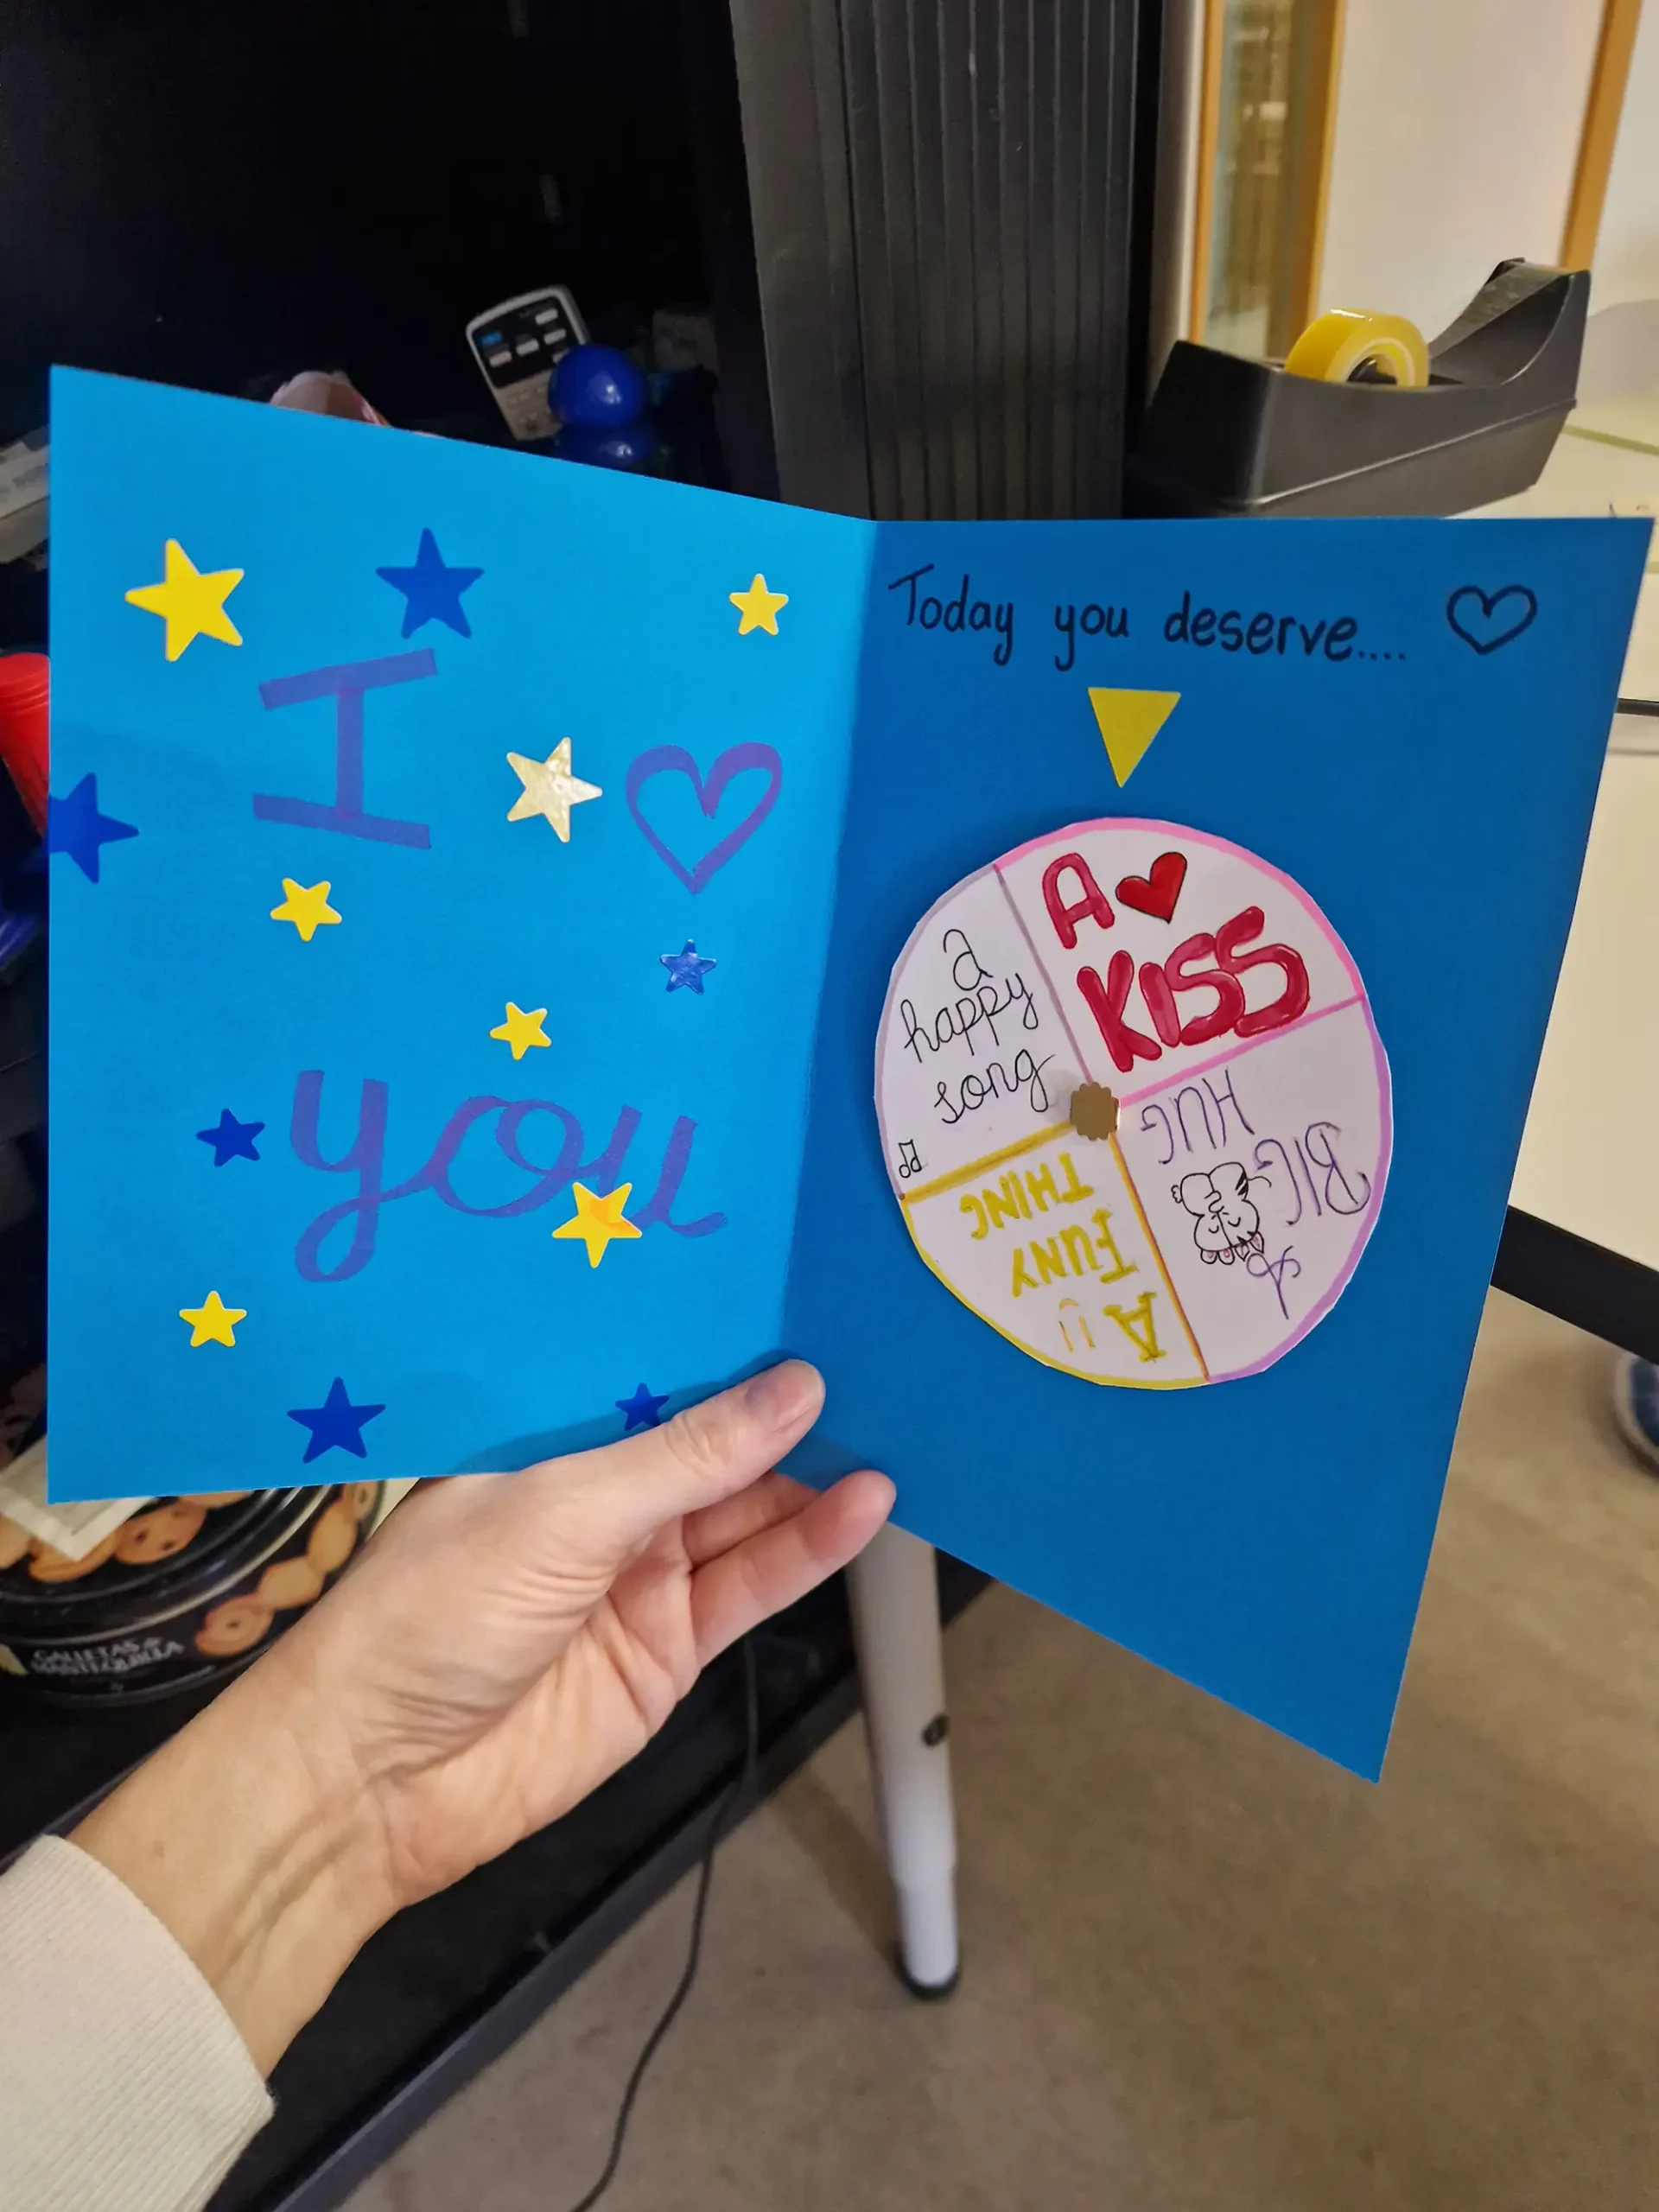 I ♡
you
Today you deserve.... ♡
A ♥
KISS
a
happy
song
A
BIG
HUG
A
FUNY
THING
GALLETAS DE
MANTEQUILLA